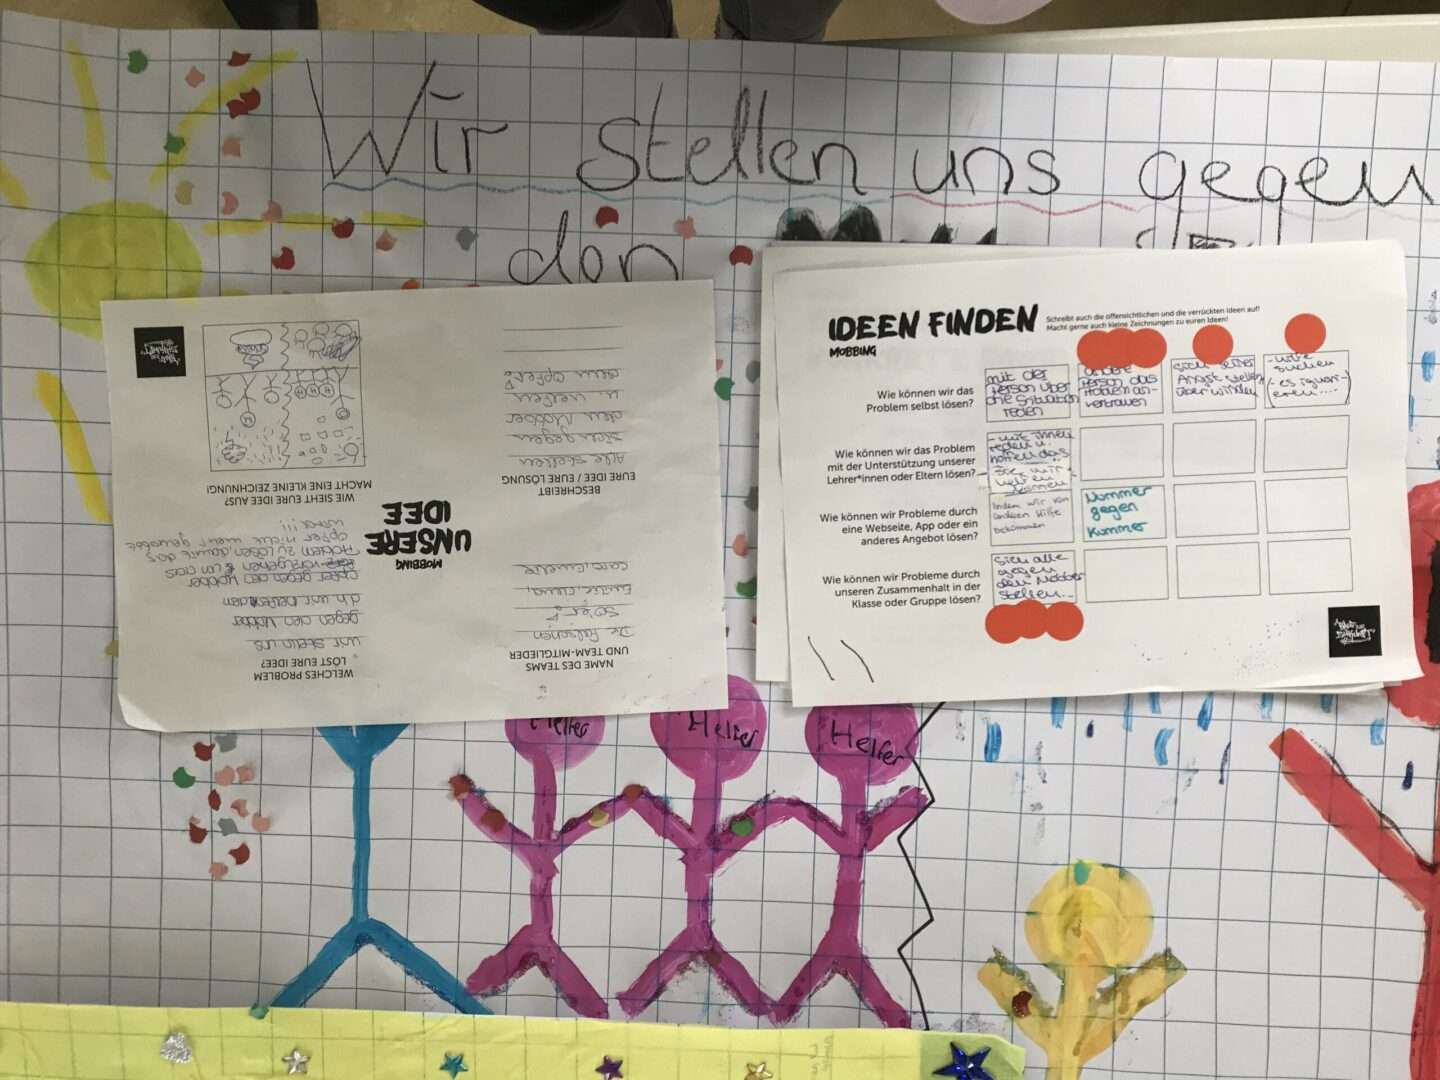 Wir stellen uns gegen
den
IDEEN FINDEN
MOBBING
Schreibt auch die offensichtlichen und die verrückten Ideen auf!
Macht gerne auch kleine Zeichnungen zu euren Ideen!
Wie können wir das
Problem selbst lösen?
mit der
Person über
die Situation
reden
andere
Person das
Problem an-
vertrauen
sich seiner
Angst stellen
überwinden
- Hilfe
suchen
- es ignori-
eren....
Wie können wir das Problem
mit der Unterstützung unserer
Lehrer*innen oder Eltern lösen?
- mit ihnen
reden u.
hoffen das
Sie mir
helfen
können
Wie können wir Probleme durch
eine Webseite, App oder ein
anderes Angebot lösen?
Indem wir von
anderen Hilfe
bekommen
Nummer
gegen
Kummer
Wie können wir Probleme durch
unseren Zusammenhalt in der
Klasse oder Gruppe lösen?
Sich alle
gegen
den Mobber
stellen...
NAME DES TEAMS
UND TEAM-MITGLIEDER
Die falschen
50er
WELCHES PROBLEM
LÖST EURE IDEE?
wir stelln uns
gegen den Mobber
d.h wir helfen den
Opfer gegen den Mobber
vorzugehen & um das
Problem zu lösen, damit das
Opfer nicht mehr gemobbt
wird!!!
MOBBING
UNSERE
IDEE
BESCHREIBT
EURE IDEE / EURE LÖSUNG
Alle stellen
sich gegen
den Mobber
u. helfen
dem Opfer
WIE SIEHT EURE IDEE AUS?
MACHT EINE KLEINE ZEICHNUNG!
Helfer
Helfer
Helfer